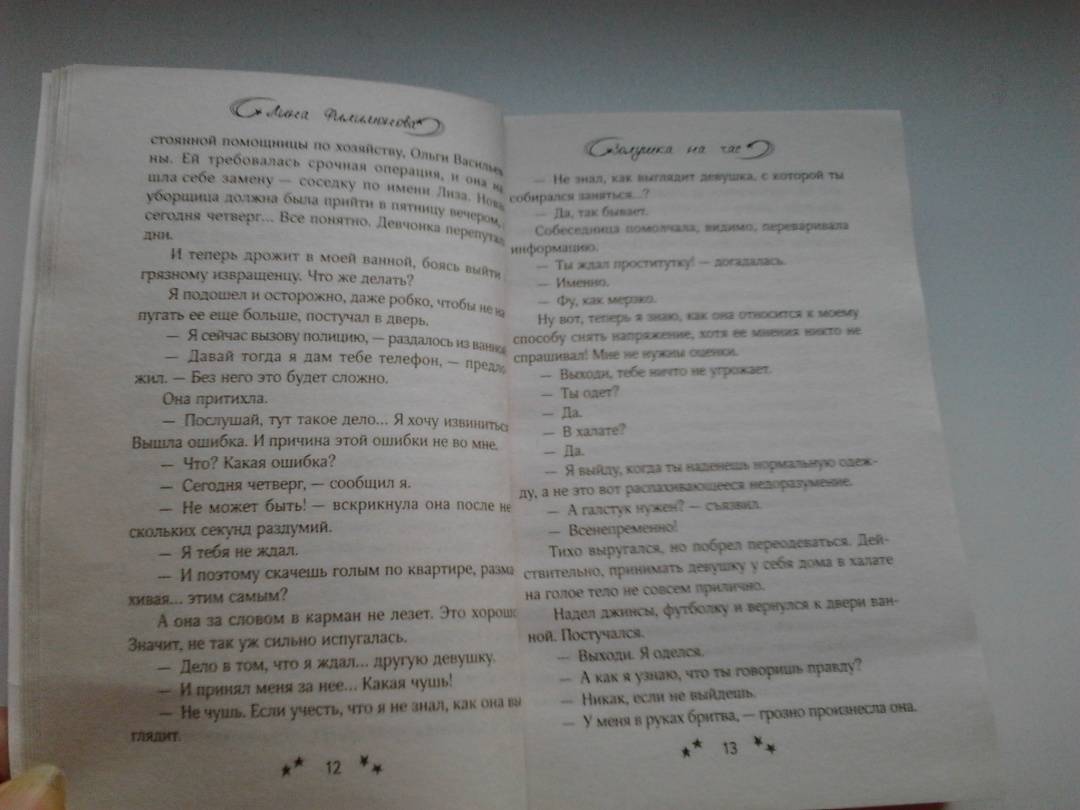 Лина Филимонова
стоянной помощницы по хозяйству, Ольги Василье
ны. Ей требовалась срочная операция, и она на
шла себе замену — соседку по имени Лиза. Нова
уборщица должна была прийти в пятницу вечером,
сегодня четверг... Все понятно. Девчонка перепутал
дни.
И теперь дрожит в моей ванной, боясь выйти
грязному извращенцу. Что же делать?
Я подошел и осторожно, даже робко, чтобы не на
пугать ее еще больше, постучал в дверь.
— Я сейчас вызову полицию, — раздалось из ванной
— Давай тогда я дам тебе телефон, — предло
жил. — Без него это будет сложно.
Она притихла.
— Послушай, тут такое дело... Я хочу извиниться
Вышла ошибка. И причина этой ошибки не во мне.
— Что? Какая ошибка?
— Сегодня четверг, — сообщил я.
— Не может быть! — вскрикнула она после не
скольких секунд раздумий.
— Я тебя не ждал.
— И поэтому скачешь голым по квартире, разма
хивая... этим самым?
А она за словом в карман не лезет. Это хорошо
Значит, не так уж сильно испугалась.
— Дело в том, что я ждал... другую девушку.
— И принял меня за нее... Какая чушь!
— Не чушь. Если учесть, что я не знал, как она вы
глядит.
12
Золушка на час
— Не знал, как выглядит девушка, с которой ты
собирался заняться...?
— Да, так бывает.
Собеседница помолчала, видимо, переваривала
информацию.
— Ты ждал проститутку! — догадалась.
— Именно.
— Фу, как мерзко.
Ну вот, теперь я знаю, как она относится к моему
способу снять напряжение, хотя ее мнения никто не
спрашивал! Мне не нужны оценки.
— Выходи, тебе ничто не угрожает.
— Ты одет?
— Да.
— В халате?
— Да.
— Я выйду, когда ты наденешь нормальную одеж-
ду, а не это вот распахивающееся недоразумение.
— А галстук нужен? — съязвил.
— Всенепременно!
Тихо выругался, но побрел переодеваться. Дей-
ствительно, принимать девушку у себя дома в халате
на голое тело не совсем прилично.
Надел джинсы, футболку и вернулся к двери ван-
ной. Постучался.
— Выходи. Я оделся.
— А как я узнаю, что ты говоришь правду?
— Никак, если не выйдешь.
— У меня в руках бритва, — грозно произнесла она.
13